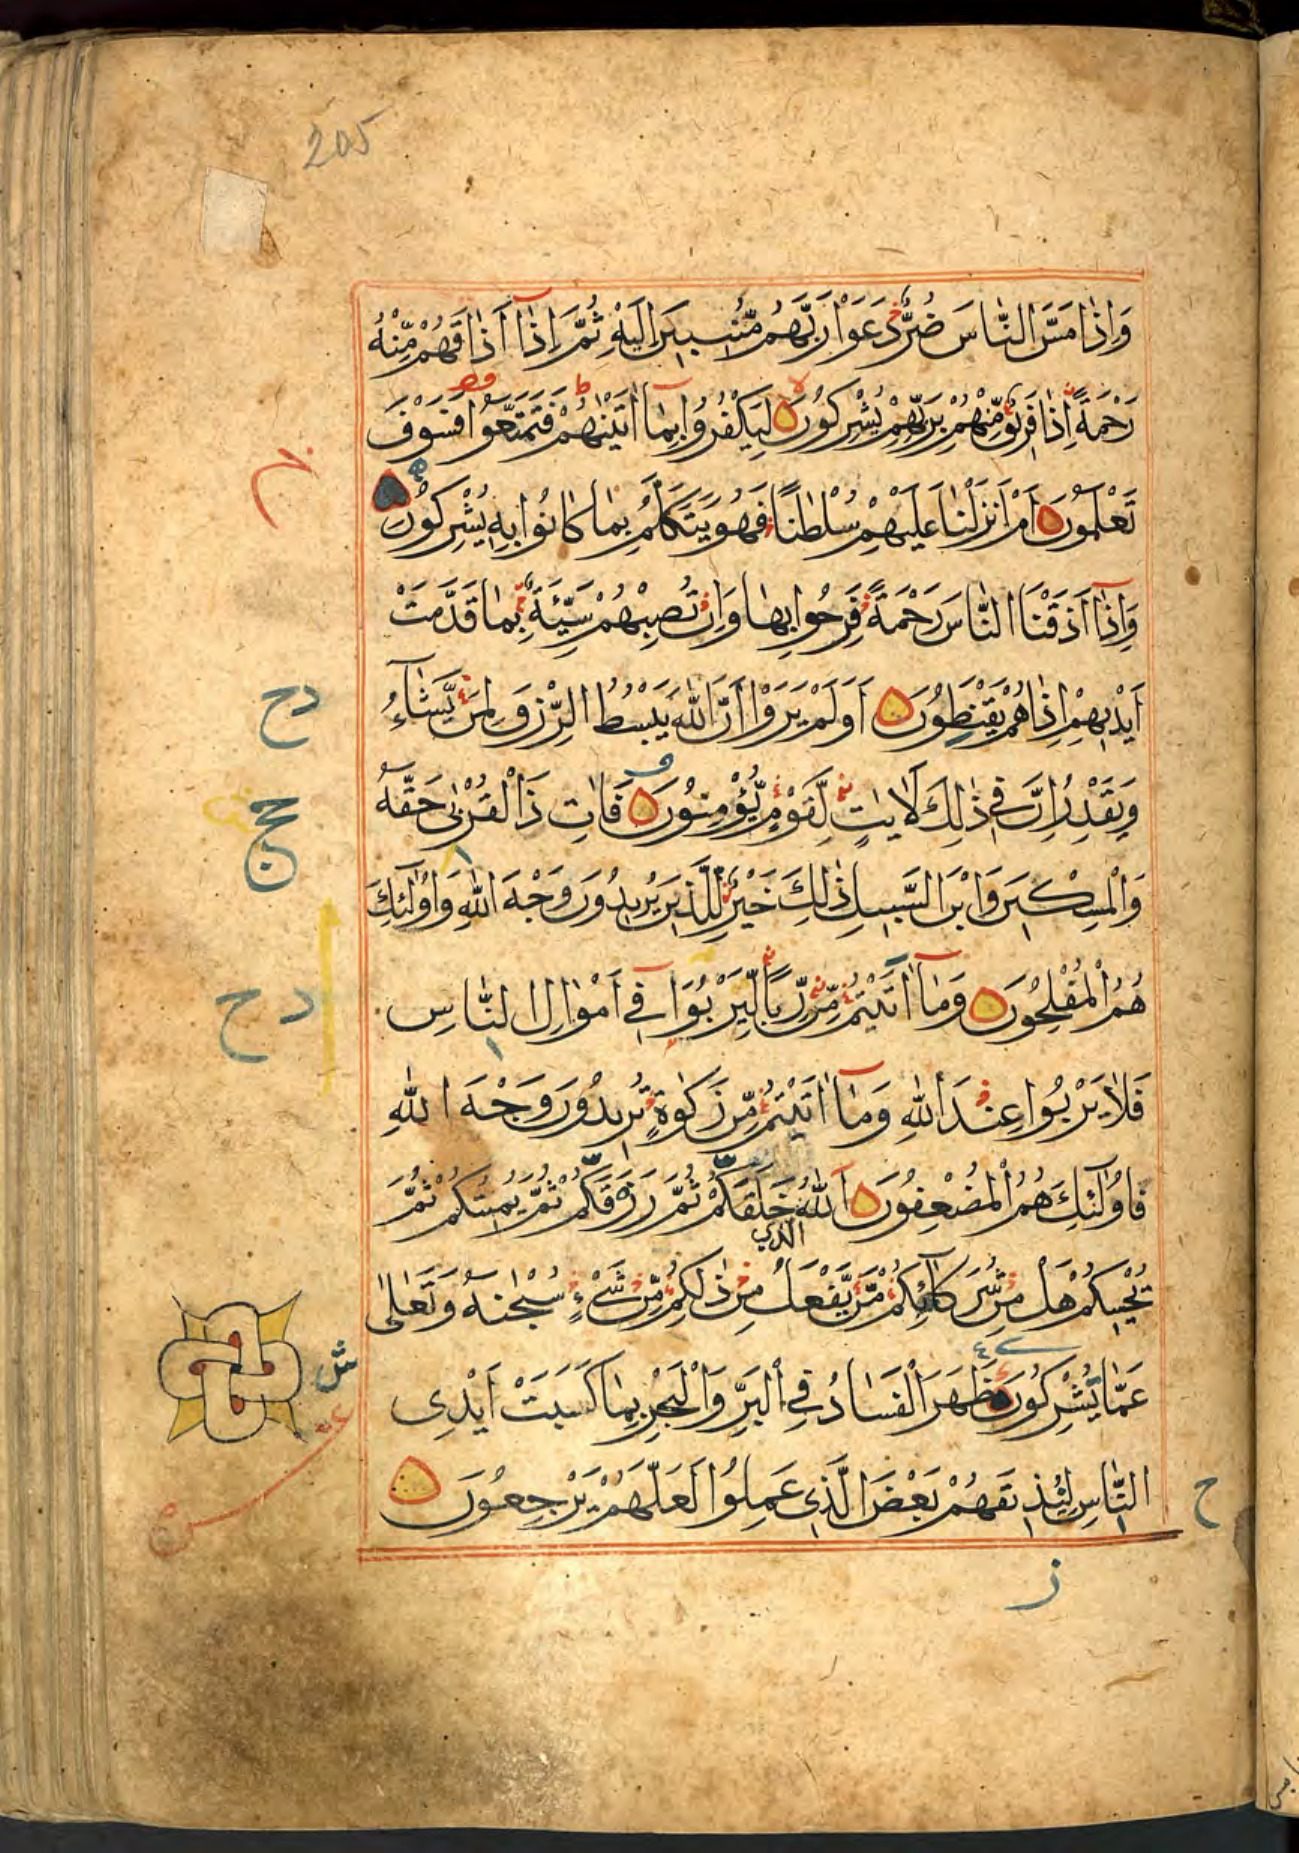 205
وَاِذَا مَسَّ النَّاسَ ضُرٌّ دَعَوْا رَبَّهُمْ مُّنِيبِينَ اِلَيْهِ ثُمَّ اِذَا اَذَاقَهُمْ مِّنْهُ
رَحْمَةً اِذَا فَرِيقٌ مِّنْهُمْ بِرَبِّهِمْ يُشْرِكُونَ لِيَكْفُرُوا بِمَا اٰتَيْنٰهُمْ فَتَمَتَّعُوا فَسَوْفَ
تَعْلَمُونَ اَمْ اَنْزَلْنَا عَلَيْهِمْ سُلْطٰنًا فَهُوَ يَتَكَلَّمُ بِمَا كَانُوا بِهِ يُشْرِكُونَ
وَاِذَا اَذَقْنَا النَّاسَ رَحْمَةً فَرِحُوا بِهَا وَاِنْ تُصِبْهُمْ سَيِّئَةٌ بِمَا قَدَّمَتْ
اَيْدِيهِمْ اِذَا هُمْ يَقْنَطُونَ اَوَلَمْ يَرَوْا اَنَّ اللّٰهَ يَبْسُطُ الرِّزْقَ لِمَنْ يَّشَاءُ
وَيَقْدِرُ اِنَّ فِي ذٰلِكَ لَاٰيٰتٍ لِّقَوْمٍ يُّؤْمِنُونَ فَاٰتِ ذَا الْقُرْبٰى حَقَّهُ
وَالْمِسْكِينَ وَابْنَ السَّبِيلِ ذٰلِكَ خَيْرٌ لِّلَّذِينَ يُرِيدُونَ وَجْهَ اللّٰهِ وَاُولٰئِكَ
هُمُ الْمُفْلِحُونَ وَمَا اٰتَيْتُمْ مِّنْ رِّبًا لِّيَرْبُوَا فِي اَمْوَالِ النَّاسِ
فَلَا يَرْبُوا عِنْدَ اللّٰهِ وَمَا اٰتَيْتُمْ مِّنْ زَكٰوةٍ تُرِيدُونَ وَجْهَ اللّٰهِ
فَاُولٰئِكَ هُمُ الْمُضْعِفُونَ اَللّٰهُ خَلَقَكُمْ ثُمَّ رَزَقَكُمْ ثُمَّ يُمِيتُكُمْ ثُمَّ
الذي
يُحْيِيكُمْ هَلْ مِنْ شُرَكَائِكُمْ مَّنْ يَّفْعَلُ مِنْ ذٰلِكُمْ مِّنْ شَيْءٍ سُبْحٰنَهُ وَتَعٰلٰى
عَمَّا يُشْرِكُونَ ظَهَرَ الْفَسَادُ فِي الْبَرِّ وَالْبَحْرِ بِمَا كَسَبَتْ اَيْدِى
النَّاسِ لِيُذِيقَهُمْ بَعْضَ الَّذِى عَمِلُوا لَعَلَّهُمْ يَرْجِعُونَ